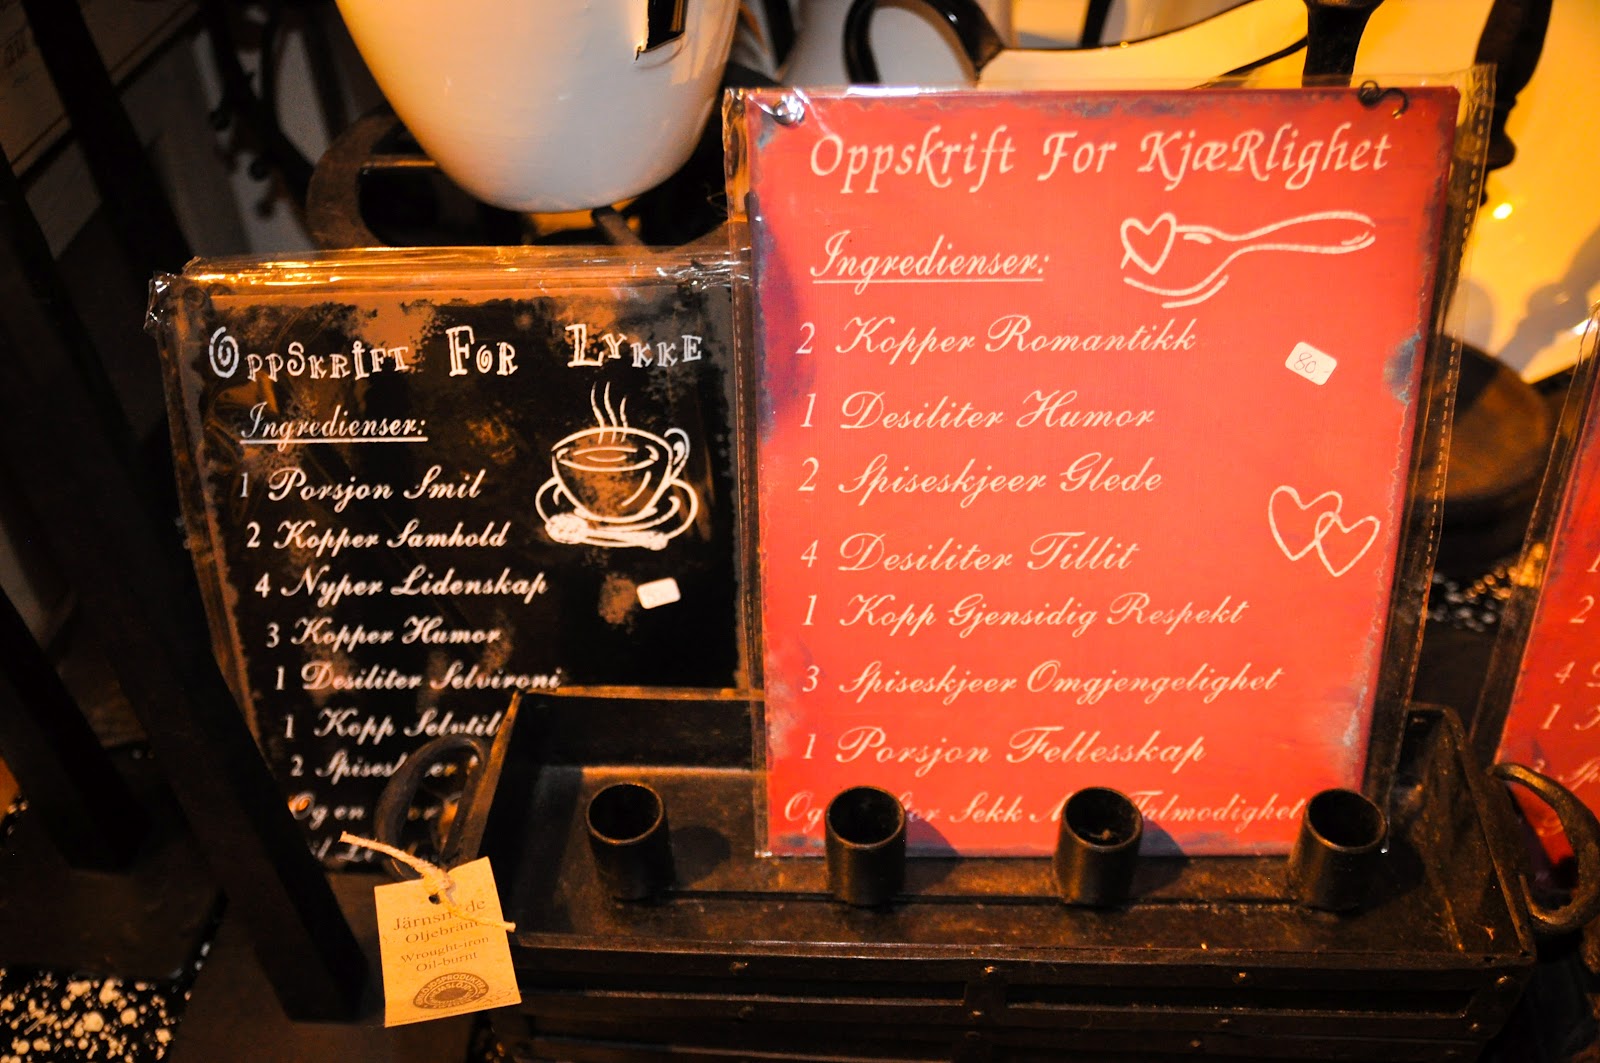 Oppskrift For Lykke
Ingredienser:
1 Porsjon Smil
2 Kopper Samhold
4 Nyper Lidenskap
3 Kopper Humor
1 Desiliter Selvironi
1 Kopp
2
Og en
Oppskrift For KjæRlighet
Ingredienser:
2 Kopper Romantikk
80
1 Desiliter Humor
2 Spiseskjeer Glede
4 Desiliter Tillit
1 Kopp Gjensidig Respekt
3 Spiseskjeer Omgjengelighet
1 Porsjon Fellesskap
Og Sekk Talmodighet
Oljebränt
Wrought-iron
Oil-burnt
2
4
1